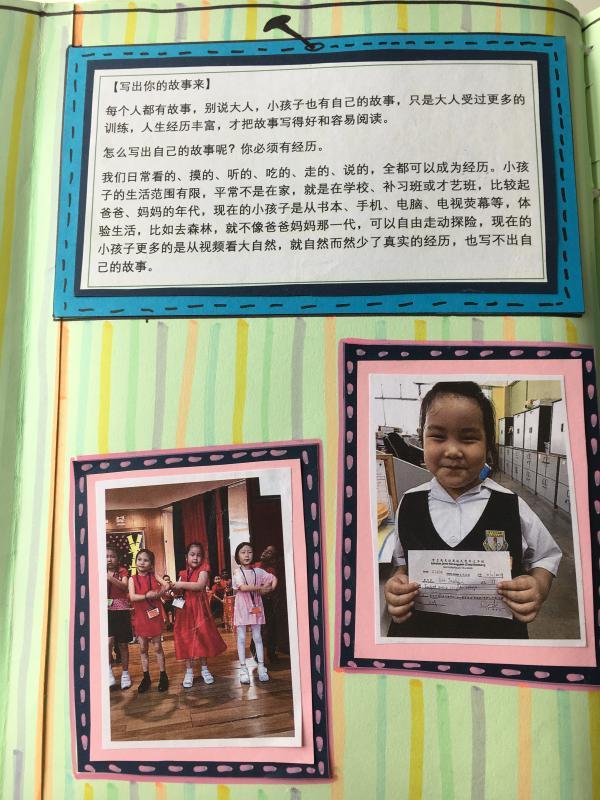 【写出你的故事来】
每个人都有故事，别说大人，小孩子也有自己的故事，只是大人受过更多的
训练，人生经历丰富，才把故事写得好和容易阅读。
怎么写出自己的故事呢？你必须有经历。
我们日常看的、摸的、听的、吃的、走的、说的，全都可以成为经历。小孩
子的生活范围有限，平常不是在家，就是在学校、补习班或才艺班，比较起
爸爸、妈妈的年代，现在的小孩子是从书本、手机、电脑、电视荧幕等，体
验生活，比如去森林，就不像爸爸妈妈那一代，可以自由走动探险，现在的
小孩子更多的是从视频看大自然，就自然而然少了真实的经历，也写不出自
己的故事。